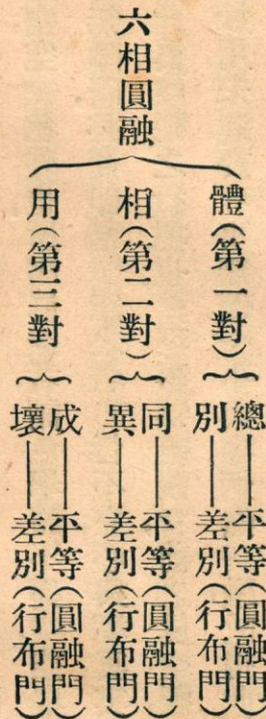 六相圓融
體(第一對)
總——平等(圓融門)
別——差別(行布門)
相(第二對)
同——平等(圓融門)
異——差別(行布門)
用(第三對)
成——平等(圓融門)
壞——差別(行布門)